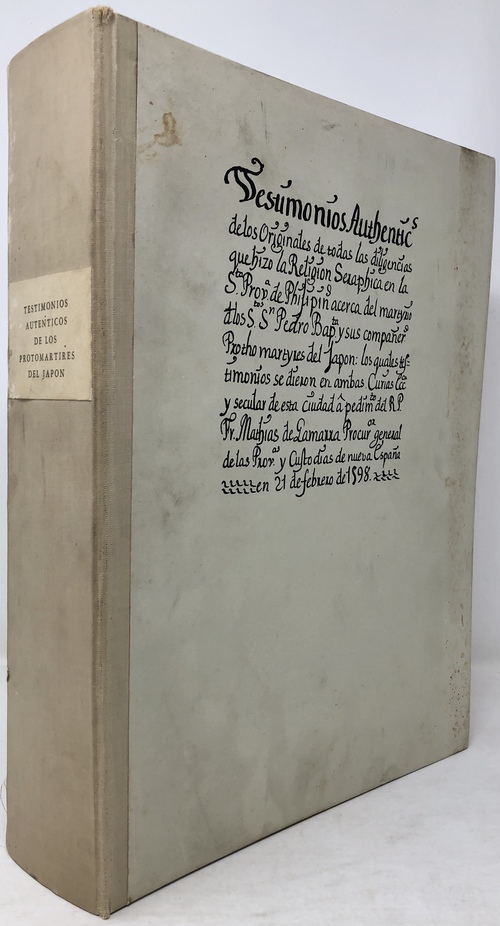 TESTIMONIOS
AUTENTICOS
DE LOS
PROTOMARTIRES
DEL JAPON
Testimonios Authentic.s
de los Originales de todas las diligencias
que hizo la Religion Seraphica en la
S.ta Prov.a de Philipin.s acerca del martyrio
d los S.s S.n Pedro Bap.ta y sus compañer.s
Protho martyres del Japon: los quales tes-
timonios se dieron en ambas Curias Ecc.ca
y secular de esta ciudad â pedim.to del R.P.
Fr. Mathias de Gamarra Procur.or general
de las Prov.as y Custodias de nueva España
en 21 de febrero de 1598.